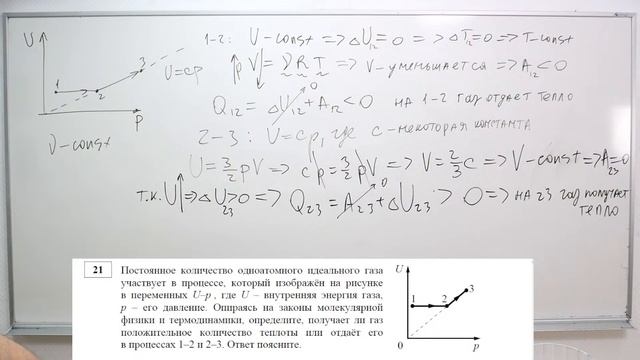 U
1
2
3
U=cp
p
ν-const
1-2: U-const => ΔU₁₂=0 => ΔT₁₂=0 => T-const
pV=νRT => V-уменьшается => A₁₂<0
Q₁₂ = ΔU₁₂ + A₁₂ < 0 на 1-2 газ отдает тепло
0
2-3: U=cp, где c-некоторая константа
U=3/2 pV => cp=3/2 pV => V=2/3 c => V-const => A₂₃=0
т.к. U↑ => ΔU₂₃>0 => Q₂₃ = A₂₃ + ΔU₂₃ > 0 => на 23 газ получает тепло
0
21
Постоянное количество одноатомного идеального газа
участвует в процессе, который изображён на рисунке
в переменных U–p, где U – внутренняя энергия газа,
p – его давление. Опираясь на законы молекулярной
физики и термодинамики, определите, получает ли газ
положительное количество теплоты или отдаёт его
в процессах 1–2 и 2–3. Ответ поясните.
U
1
2
3
0
p